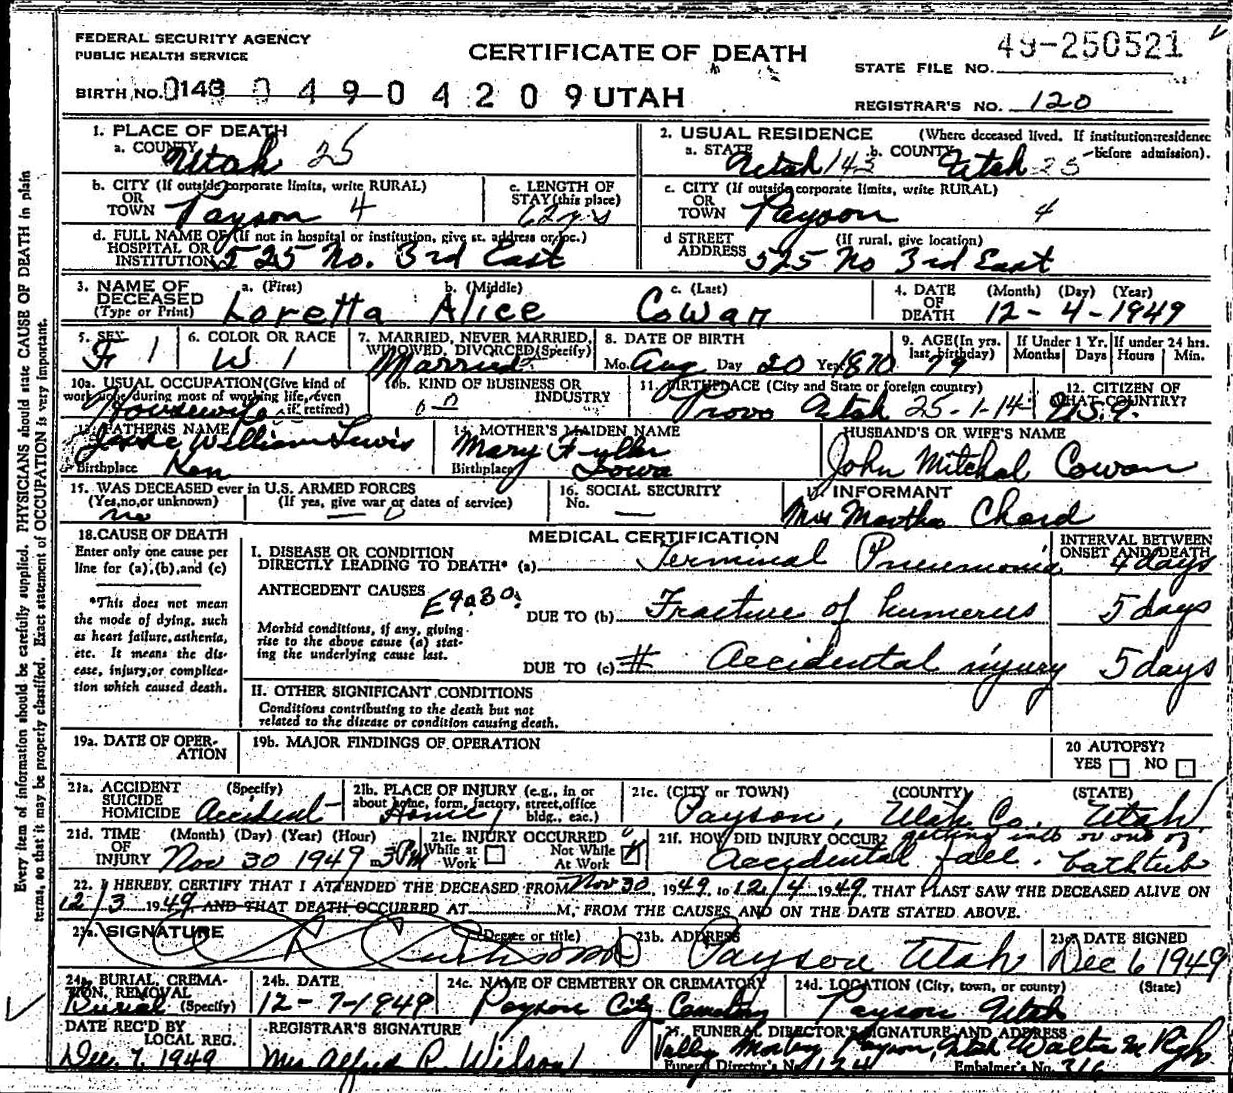 FEDERAL SECURITY AGENCY
PUBLIC HEALTH SERVICE
CERTIFICATE OF DEATH
49-250521
STATE FILE NO.
BIRTH NO. 0143 0 4 9 0 4 2 0 9 UTAH
REGISTRAR'S NO. 120
Every item of information should be carefully supplied. PHYSICIANS should state CAUSE OF DEATH in plain
terms, so that it may be properly classified. Exact statement of OCCUPATION is very important.
1. PLACE OF DEATH
a. COUNTY Utah 25
2. USUAL RESIDENCE (Where deceased lived. If institution:residence before admission).
a. STATE Utah 143 b. COUNTY Utah 25
b. CITY (If outside corporate limits, write RURAL)
OR TOWN Payson 4
c. LENGTH OF STAY (this place)
62 yrs
c. CITY (If outside corporate limits, write RURAL)
OR TOWN Payson 4
d. FULL NAME OF (If not in hospital or institution, give st. address or loc.)
HOSPITAL OR INSTITUTION 525 No. 3rd East
d STREET ADDRESS (If rural, give location)
525 No 3rd East
3. NAME OF DECEASED (Type or Print)
a. (First) b. (Middle) c. (Last)
Loretta Alice Cowan
4. DATE OF DEATH (Month) (Day) (Year)
12-4-1949
5. SEX
F 1
6. COLOR OR RACE
W 1
7. MARRIED, NEVER MARRIED, WIDOWED, DIVORCED (Specify)
Married
8. DATE OF BIRTH
Mo. Aug Day 20 Yr. 1870
9. AGE (In yrs. last birthday)
79
If Under 1 Yr. Months Days
If under 24 hrs. Hours Min.
10a. USUAL OCCUPATION (Give kind of work done during most of working life, even if retired)
Housewife
10b. KIND OF BUSINESS OR INDUSTRY
11. BIRTHPLACE (City and State or foreign country)
Provo Utah 25-1-14
12. CITIZEN OF WHAT COUNTRY?
U.S.A.
13. FATHER'S NAME
William Lewis
Birthplace Ken
14. MOTHER'S MAIDEN NAME
Mary Fuller
Birthplace Iowa
HUSBAND'S OR WIFE'S NAME
John Mitchal Cowan
15. WAS DECEASED ever in U.S. ARMED FORCES
(Yes, no, or unknown) (If yes, give war or dates of service)
no — 0
16. SOCIAL SECURITY
No. —
17. INFORMANT
Mrs Martha Chard
18. CAUSE OF DEATH
Enter only one cause per line for (a), (b), and (c)
*This does not mean the mode of dying, such as heart failure, asthenia, etc. It means the disease, injury, or complication which caused death.
MEDICAL CERTIFICATION
INTERVAL BETWEEN ONSET AND DEATH
I. DISEASE OR CONDITION
DIRECTLY LEADING TO DEATH* (a) Terminal Pneumonia 4 days
ANTECEDENT CAUSES
Morbid conditions, if any, giving rise to the above cause (a) stating the underlying cause last.
DUE TO (b) Fracture of humerus 5 days
DUE TO (c) # Accidental injury 5 days
II. OTHER SIGNIFICANT CONDITIONS
Conditions contributing to the death but not
related to the disease or condition causing death.
19a. DATE OF OPERATION
19b. MAJOR FINDINGS OF OPERATION
20 AUTOPSY?
YES NO
21a. ACCIDENT SUICIDE HOMICIDE (Specify)
Accident
21b. PLACE OF INJURY (e.g., in or about home, form, factory, street, office bldg., eac.)
Home
21c. (CITY or TOWN) (COUNTY) (STATE)
Payson, Utah Co. Utah
21d. TIME OF INJURY (Month) (Day) (Year) (Hour)
Nov 30 1949 3 PM m
21e. INJURY OCCURRED
While at Work Not While At Work
21f. HOW DID INJURY OCCUR? getting into or out of
Accidental fall. bathtub
22. I HEREBY CERTIFY THAT I ATTENDED THE DECEASED FROM Nov 30, 1949, to 12/4 1949, THAT I LAST SAW THE DECEASED ALIVE ON
12/3 1949 AND THAT DEATH OCCURRED AT M, FROM THE CAUSES AND ON THE DATE STATED ABOVE.
23a. SIGNATURE (Degree or title)
23b. ADDRESS
Payson Utah
23c. DATE SIGNED
Dec 6 1949
24a. BURIAL, CREMATION, REMOVAL (Specify)
Burial
24b. DATE
12-7-1949
24c. NAME OF CEMETERY OR CREMATORY
Payson City Cemetery
24d. LOCATION (City, town, or county) (State)
Payson Utah
DATE REC'D BY LOCAL REG.
Dec. 7, 1949
REGISTRAR'S SIGNATURE
Mrs Alfred R. Wilson
25. FUNERAL DIRECTOR'S SIGNATURE AND ADDRESS
Valley Mortuary Payson, Utah Walter M
Funeral Director's No. 124 Embalmer's No. 316